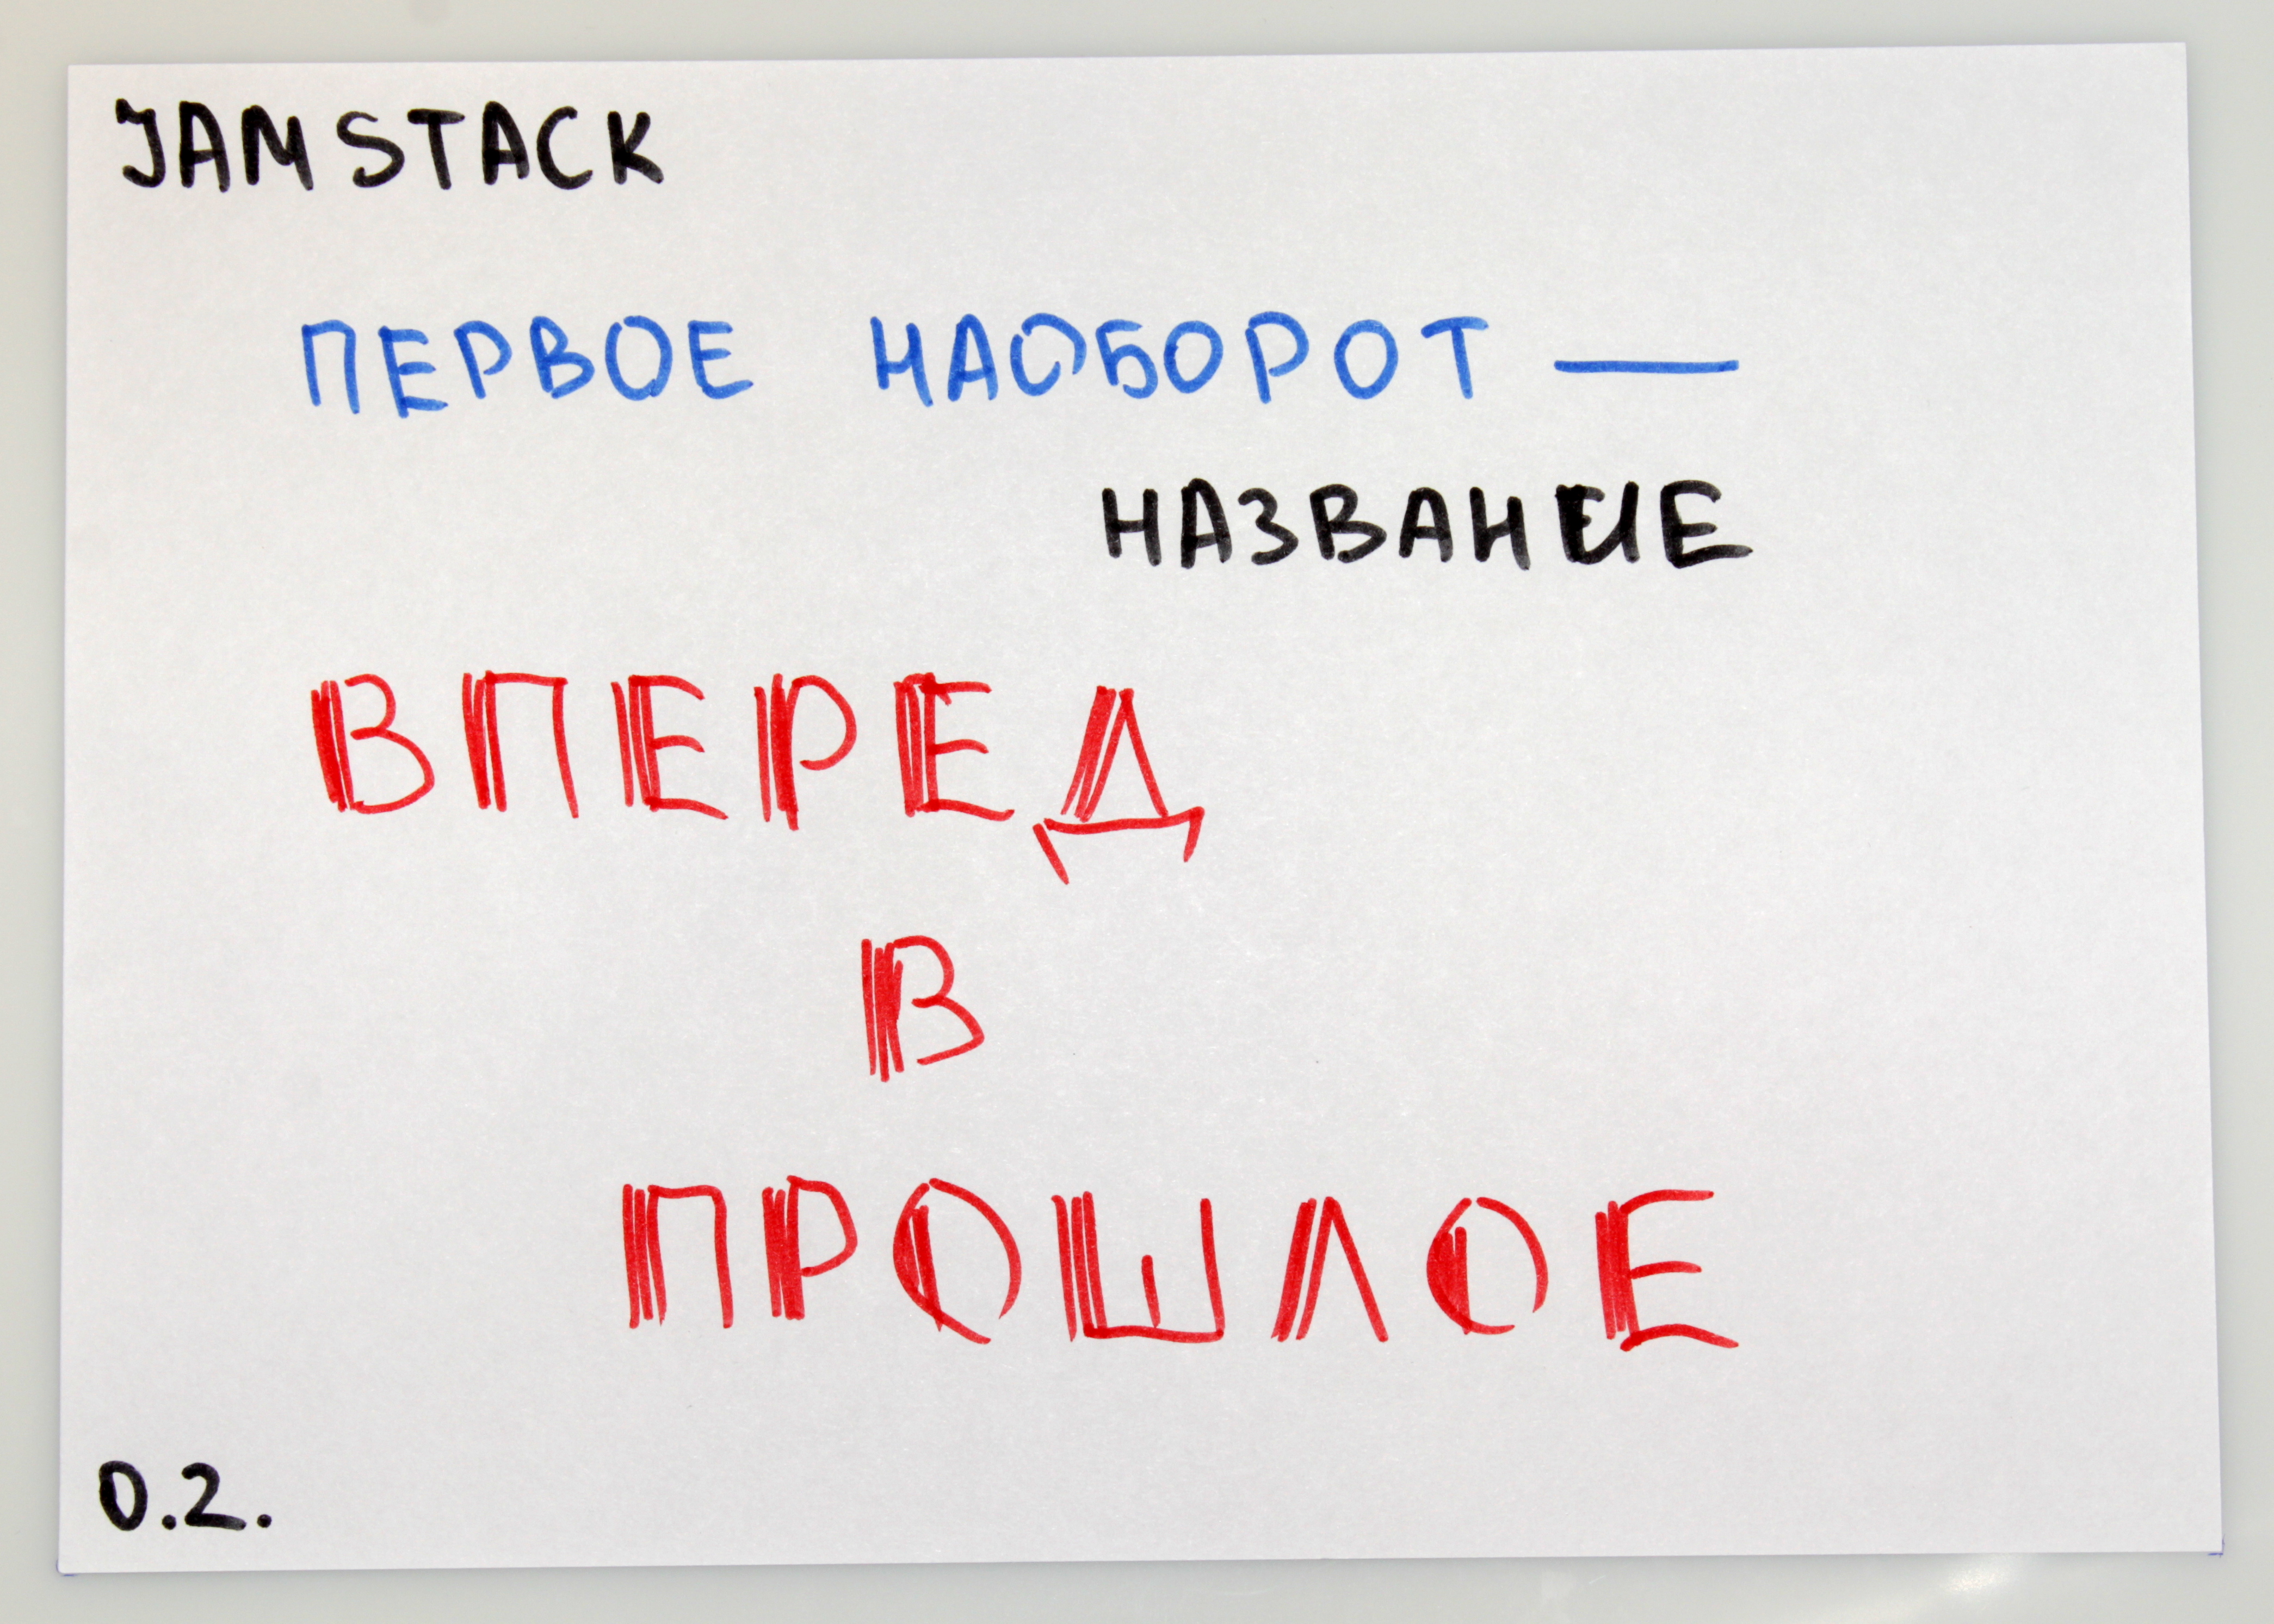 JAMSTACK
ПЕРВОЕ НАОБОРОТ —
НАЗВАНИЕ
ВПЕРЕД
В
ПРОШЛОЕ
0.2.